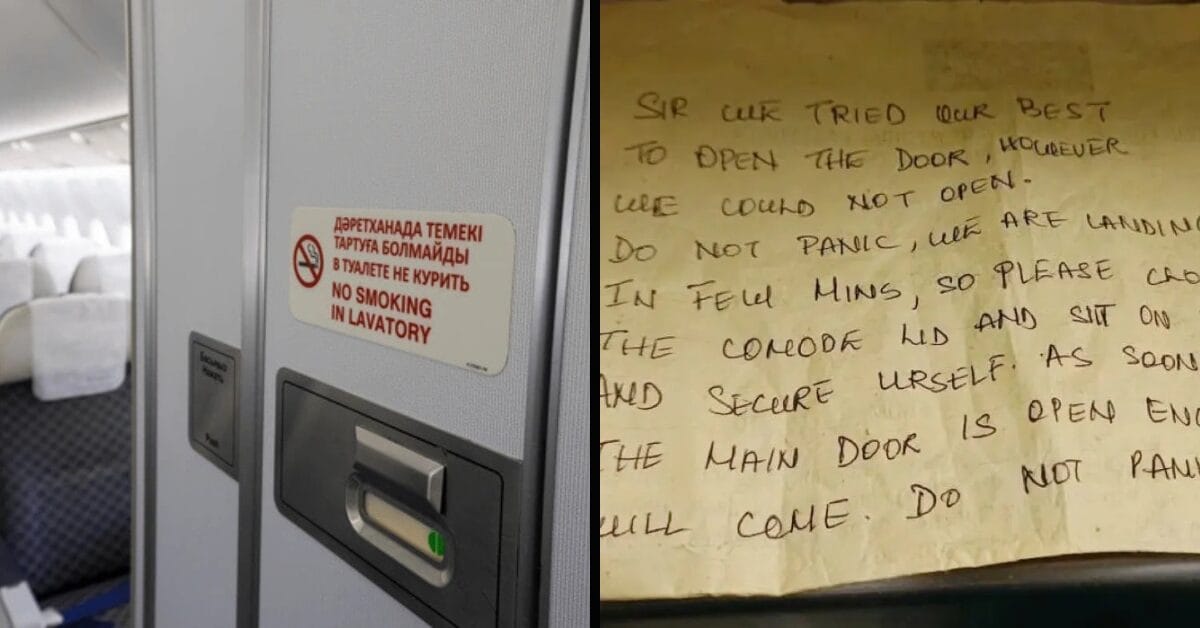 ДӘРЕТХАНАДА ТЕМЕКІ
ТАРТУҒА БОЛМАЙДЫ
В ТУАЛЕТЕ НЕ КУРИТЬ
NO SMOKING
IN LAVATORY
Басыңыз
Нажать
Push
SIR WE TRIED OUR BEST
TO OPEN THE DOOR, HOWEVER
WE COULD NOT OPEN.
DO NOT PANIC, WE ARE LANDING
IN FEW MINS, SO PLEASE CLO
THE COMODE LID AND SIT ON
AND SECURE URSELF. AS SOON
THE MAIN DOOR IS OPEN ENG
WILL COME. DO NOT PANI